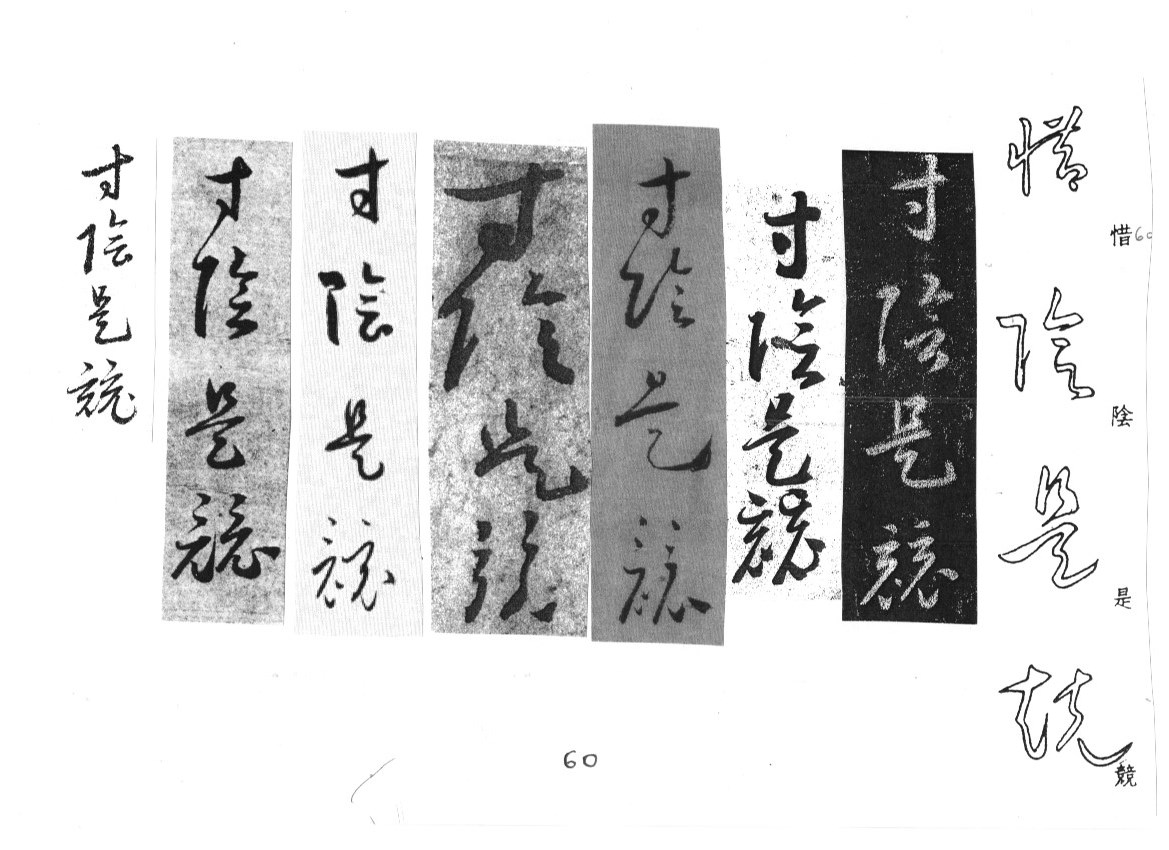 惜
陰
是
競
惜60
陰
是
競
寸陰是競
寸陰是競
寸陰是競
寸陰是競
寸陰是競
寸陰是競
寸陰是競
60